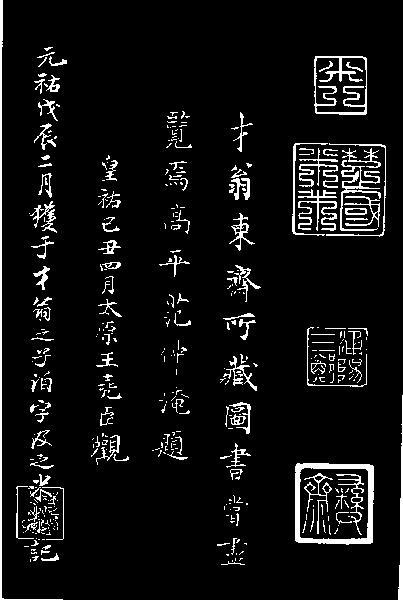 才翁東齋所藏圖書嘗盡
覽焉高平范仲淹題
皇祐己丑四月太原王堯臣觀
元祐戊辰二月獲于才翁之子洎字及之米黻記